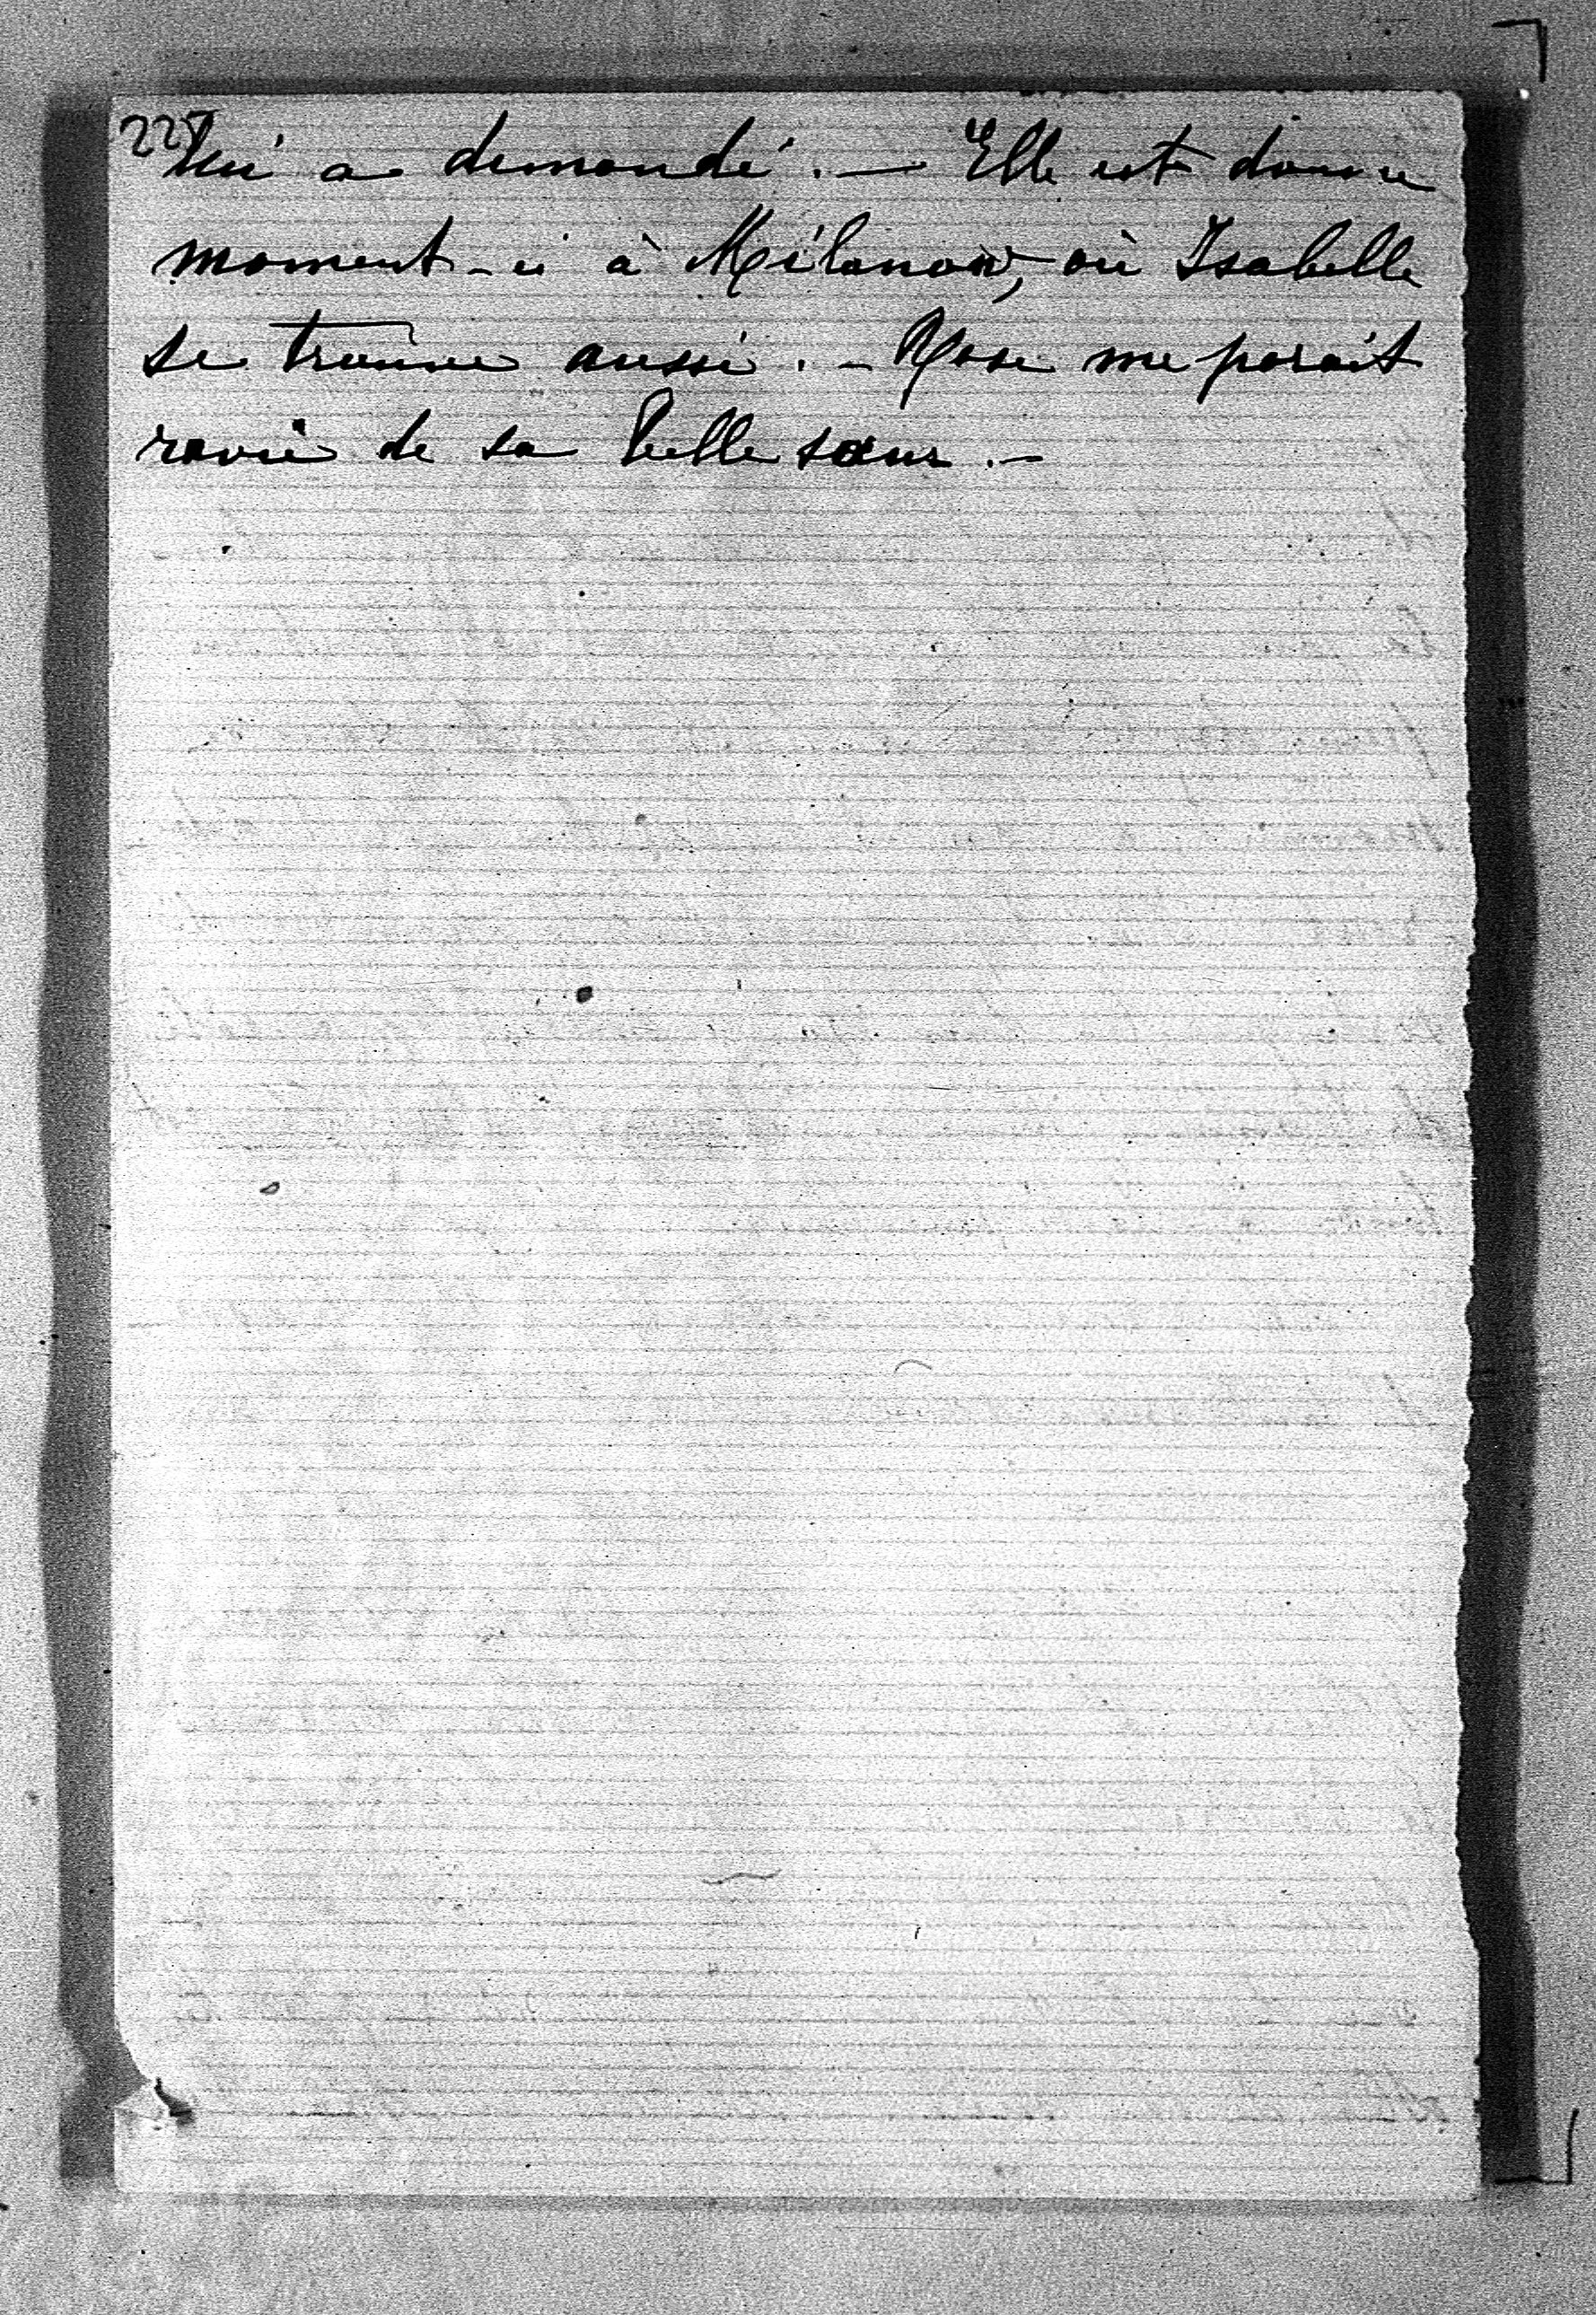 lui a demandé. — Elle est dans ce
moment-ci à Milanow, où Isabelle
se trouve aussi. — Rose me paraît
ravie de sa belle sœur. —